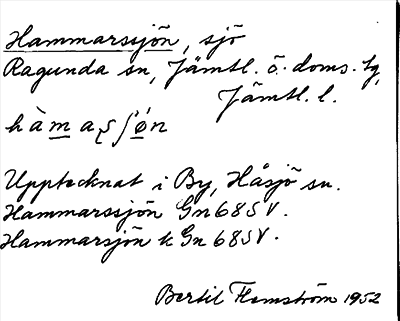 Hammarssjön, sjö
Ragunda sn, Jämtl. ö. doms. tg,
Jämtl. l.
Upptecknat i By, Håsjö sn.
Hammarssjön Gn 68SV.
Hammarsjön k Gn 68SV.
Bertil Flemström 1952